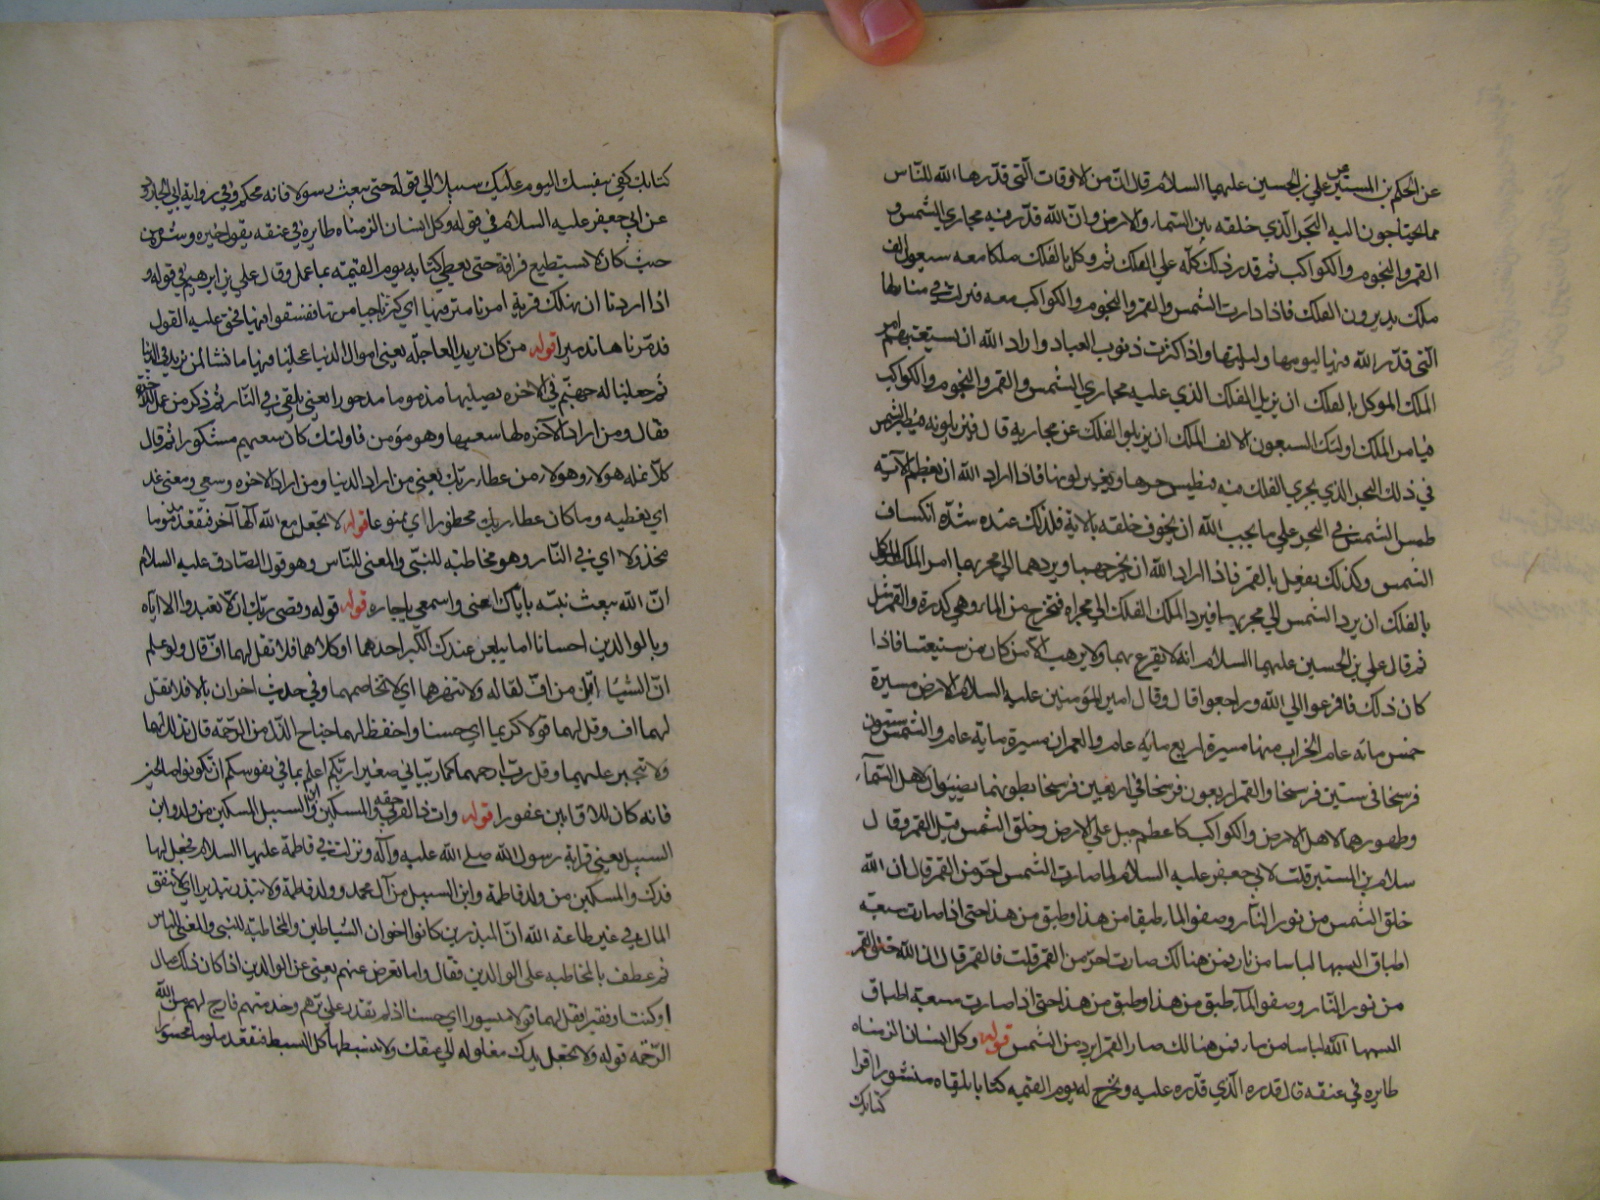 عن الحكم بن المستنير عن علي بن الحسين عليهما السلام قال ان من الاوقات التي قدرها الله للناس
مما يحتاجون اليه البحر الذي خلقه بين السماء والارض وان الله قدر فيه مجاري الشمس و
القمر والنجوم والكواكب ثم قدر ذلك كله علي الفلك ثم وكل بالفلك ملكا معه سبعون الف
ملك يديرون الفلك فاذا دارت الشمس والقمر والنجوم والكواكب معه فنزلت في منازلها
التي قدر الله فيها ليومها وليلتها واذا كثرت ذنوب العباد واراد الله ان يستعتبهم امر
الملك الموكل بالفلك ان يزيل الفلك الذي عليه مجاري الشمس والقمر والنجوم والكواكب
فيامر الملك اولئك السبعون الالف الملك ان يزيلوا الفلك عن مجاريه قال فيزيلونه فتصير الشمس
في ذلك البحر الذي يجري الفلك فيه فيطمس حرها ويغير لونها فاذا اراد الله ان يعظم الآية
طمس الشمس في البحر علي ما يحب الله ان يخوف خلقه بالاية فلذلك عند شدة انكساف
الشمس وكذلك يفعل بالقمر فاذا اراد الله ان يخرجهما ويردهما الي مجريهما امر الملك الموكل
بالفلك ان يرد الشمس الي مجريها فيرد الملك الفلك الي مجراه فتخرج من الماء وهي كدرة والقمر مثل
ثم قال علي بن الحسين عليهما السلام انه لا يفزع بهما ولا يرهب الا من كان من شيعتنا فاذا
كان ذلك فافزعوا الي الله وراجعوا قال وقال امير المؤمنين عليه السلام الارض مسيرة
خمس مائة عام الخراب منها مسيرة اربع ماية عام والعمران مسيرة ماية عام والشمس ستون
فرسخا في ستين فرسخا والقمر اربعون فرسخا في اربعين فرسخا بطونهما يضيئان لاهل السماء
وظهورهما لاهل الارض والكواكب كاعظم جبل علي الارض وخلق الشمس قبل القمر وقال
سلام بن المستنير قلت لابي جعفر عليه السلام لما صارت الشمس احر من القمر قال ان الله
خلق الشمس من نور النار وصفو الماء طبقا من هذا وطبق من هذا حتى اذا صارت سبعة
اطباق البسها لباسا من نار فمن هنالك صارت احر من القمر قلت فالقمر قال ان الله خلق القمر
من نور النار وصفو الماء طبق من هذا وطبق من هذا حتى اذا صارت سبعة اطباق
البسها الله لباسا من ماء فمن هنالك صار القمر ابرد من الشمس قوله وكل انسان الزمناه
طايره في عنقه قال قدره الذي قدره عليه ونخرج له يوم القيمه كتابا يلقاه منشورا اقرا
كتابك
كتابك كفي بنفسك اليوم عليك حتى نبعث رسولا فانه محكم وفي رواية ابي الجارود
عن ابي جعفر عليه السلام في قوله وكل انسان الزمناه طايره في عنقه يقول خيره وشره معه
حيث كان لا يستطيع فراقه حتى يعطي كتابه يوم القيمه بما عمل وقال علي بن ابرهيم في قوله و
اذا اردنا ان نهلك قرية امرنا مترفيها اي كثرنا جبابرتها ففسقوا فيها فحق عليه القول
فدمرناها تدميرا قوله من كان يريد العاجله يعني اموال الدنيا عجلنا فيها ما نشا لمن نريد في الدنيا
ثم جعلنا له جهنم في الاخره يصليها مذموما مدحورا يعني يلقي في النار ثم ذكر من عمل للآخرة
فقال ومن اراد الآخره لها سعيها وهو مؤمن فاولئك كان سعيهم مشكورا ثم قال
كلا نمد هولاء وهولاء من عطاء ربك يعني من اراد الدنيا ومن اراد الاخره وسعي ومعني نمد
اي يعطيه وما كان عطاء ربك محظورا اي ممنوعا قوله لا تجعل مع الله الها آخر فتقعد مذموما
مخذولا اي في النار وهو مخاطبة للنبي والمعني للناس وهو قول الصادق عليه السلام
ان الله بعث نبيه باياك اعني واسمعي يا جاره قوله قوله وقضى ربك ان لا تعبدوا الا اياه
وبالوالدين احسانا اما يبلغن عندك الكبر احدهما او كلاهما فلا تقل لهما اف قال ولو علم
ان شيئا اقل من اف لقاله ولا تنهرهما اي لا تخاصمهما وفي حديث اخر ان بالا فلا تقل
لهما اف وقل لهما قولا كريما اي حسنا واخفض لهما جناح الذل من الرحمة قال تذلل لهما
ولا تتجبر عليهما وقل رب ارحمهما كما ربياني صغيرا ربكم اعلم بما في نفوسكم ان تكونوا صالحين
فانه كان للاوابين غفورا قوله وات ذا القربي حقه والمسكين وابن السبيل المسكين من ولد وابن
السبيل يعني قرابة رسول الله صلى الله عليه وآله ونزلت في فاطمة عليها السلام فجعل لها
فدك والمسكين من ولد فاطمة وابن السبيل من آل محمد وولد فاطمة ولا تبذر تبذيرا اي لا تنفق
المال في غير طاعة الله ان المبذرين كانوا اخوان الشياطين والمخاطبة للنبي والمعني للناس
ثم عطف بالمخاطبه على الوالدين فقال واما تعرضن عنهم يعني عن الوالدين اذا كان ذلك عيال
او كنت فقيرا فقل لهما قولا ميسورا اي حسنا اذا لم تقدر علي برهم وخدمتهم فارج لهم من الله
الرحمه قوله ولا تجعل يدك مغلوله الي عنقك ولا تبسطها كل البسط فتقعد ملوما محسورا